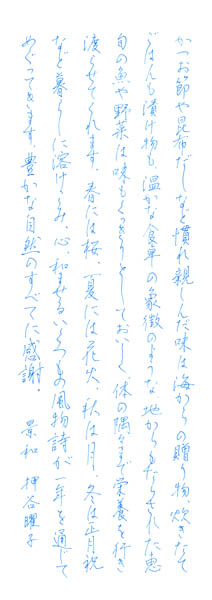 かつお節や昆布だしなど慣れ親しんだ味は海からの贈り物、炊きたて
ごはんも漬け物も、温かな食卓の象徴のような、地からもたらされた恵
旬の魚や野菜は味もくっきりとしておいしく、体の隅々まで栄養を行き
渡らせてくれます。春には桜、夏には花火、秋は月、冬は正月祝
など暮らしに溶けこみ、心、和ませるいくつもの風物詩が一年を通じて
めぐってきます。豊かな自然のすべてに感謝。 景和 押谷曜子